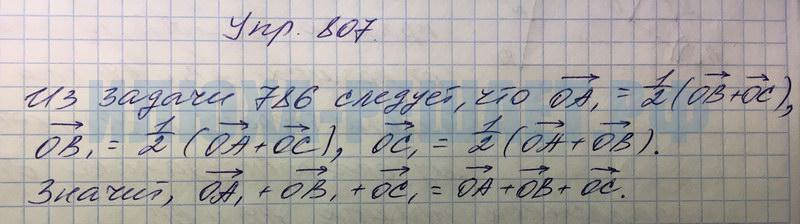 Упр. 807.
Из задачи 786 следует, что $\overrightarrow{OA_1} = \frac{1}{2}(\overrightarrow{OB}+\overrightarrow{OC})$,
$\overrightarrow{OB_1} = \frac{1}{2}(\overrightarrow{OA}+\overrightarrow{OC})$, $\overrightarrow{OC_1} = \frac{1}{2}(\overrightarrow{OA}+\overrightarrow{OB})$.
Значит, $\overrightarrow{OA_1}+\overrightarrow{OB_1}+\overrightarrow{OC_1}=\overrightarrow{OA}+\overrightarrow{OB}+\overrightarrow{OC}$.